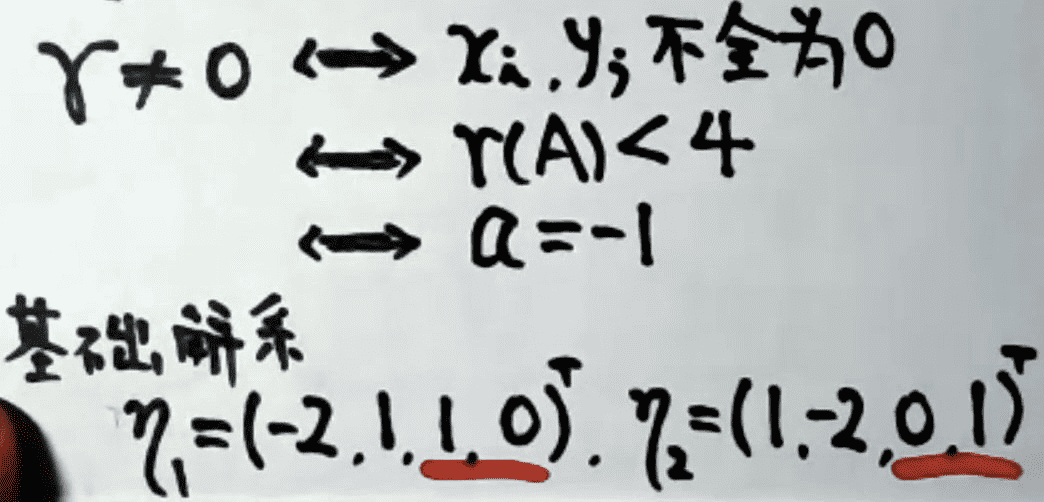 γ≠0 ⟷ xᵢ, yⱼ 不全为0
⟷ r(A)<4
⟷ a=-1
基础解系
η₁=(-2,1,1,0)ᵀ. η₂=(1,-2,0,1)ᵀ